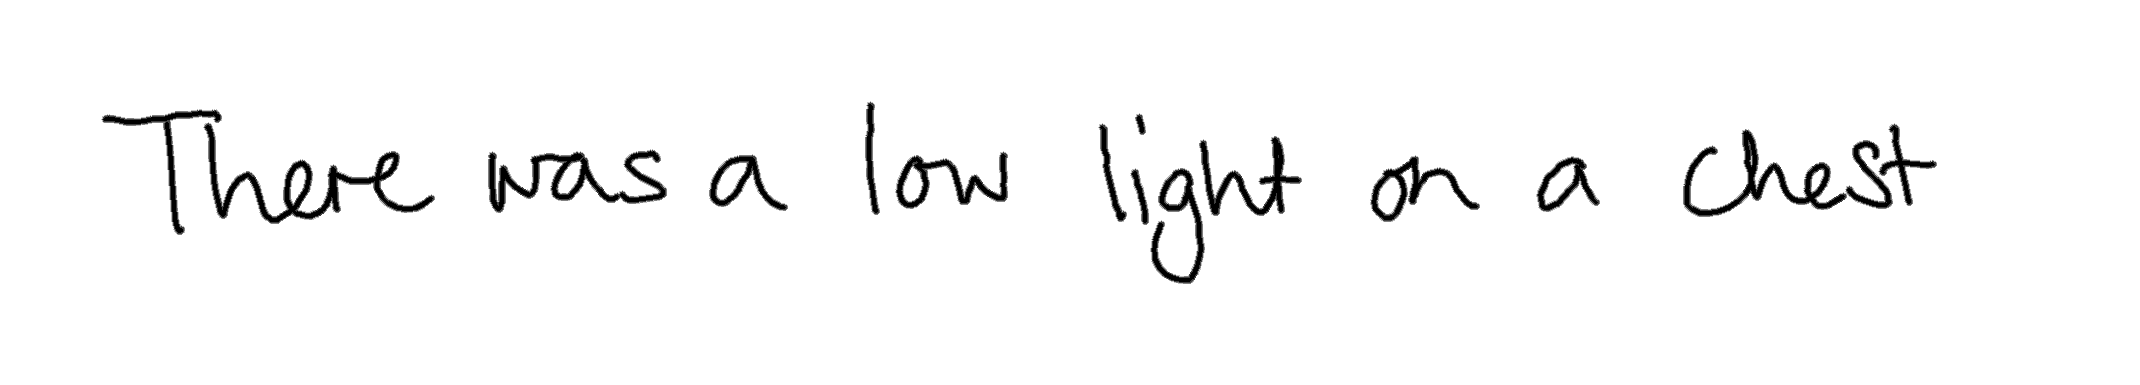 There was a low light on a chest